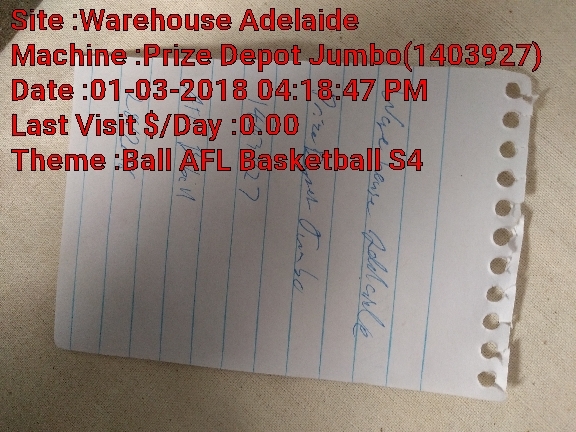 Site :Warehouse Adelaide
Machine :Prize Depot Jumbo(1403927)
Date :01-03-2018 04:18:47 PM
Last Visit $/Day :0.00
Theme :Ball AFL Basketball S4
Warehouse Adelaide
Jumbo
1403927